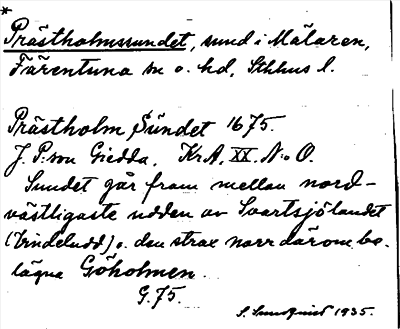 *
Prästholmssundet, sund i Mälaren,
Färentuna sn o. hd, Sthlms l.
Prästholm Sündet 1675.
J. P:son Giedda. Kr.A. XX. N:o O.
Sundet går fram mellan nord-
västligaste udden av Svartsjölandet
(Vindeludd) o. den strax norr därom be-
lägna Göholmen.
G. 75.
S. Sundquist 1935.